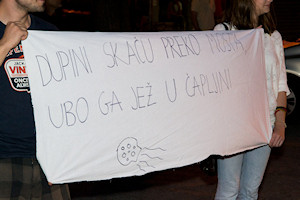 DUPINI SKAČU PREKO MOSTA
UBO GA JEŽ U ČAPLJINI
JACK
VIN